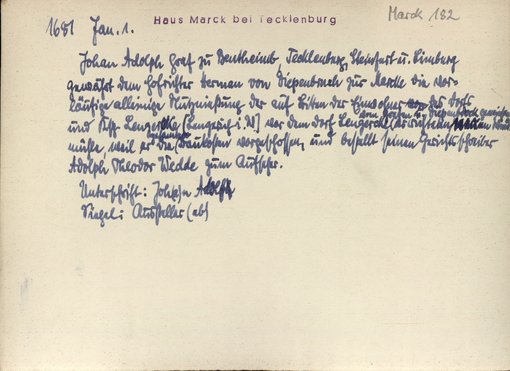 Haus Marck bei Tecklenburg
Marck 182
1681 Jan. 1.
Johan Adolph Graf zu Bentheimb, Tecklenburg, Steinfurt u. Limburg
gewährt dem Hofrichter Herman von Diepenbroch zur Marcke die vor-
läufige alleinige Nutznießung der auf Bitten der Einwohner des Dorfs
und Ksp. Lengercke (Lengerich i. W.) vor dem dorf Lengercke
müsse, weil er die Baukosten vorgeschossen, und bestellt seinen Gerichtschreiber
Adolph Theodor Wedde zum Aufseher.
Unterschrift: Johan Adolph
Siegel: Aussteller (ab)